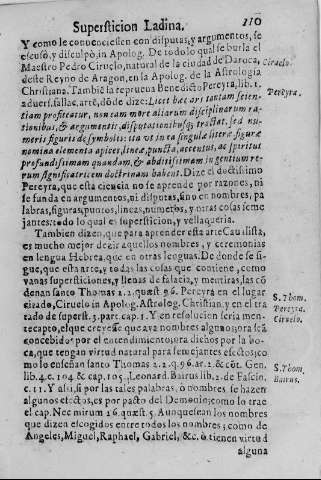 Supersticion Ladina. 210
Y como le convenciessen con disputas, y argumentos, se
escusò, y disculpò, in Apolog. De todo lo qual se burla el
Maestro Pedro Ciruelo, natural de la ciudad de Daroca,
deste Reyno de Aragon, en la Apolog. de la Astrologia
Christiana. Tambiẽ la reprueva Benedicto Pereyra, lib. 1.
advers. fallac. artẽ, dõde dize: Licet hæc ars tantam scien-
tiam profiteatur, non eam more aliarum disciplinarum ra-
tionibus, & argumentis, disputationibusq; tractat, sed nu-
meris figuris & symbolis: ita vt in ea singulæ literæ figuræ
nomina elementa apices, lineæ, puncta, accentus, ac spiritus
profundissimam quandam, & abditissimam ingentium re-
rum significatricem doctrinam habent. Dize el doctissimo
Pereyra, que esta ciencia no se aprende por razones, ni
se funda en argumentos, ni disputas, sino en nombres, pa
labras, figuras, puntos, lineas, numeros, y otras cosas seme
jantes: todo lo qual es supersticion, y vellaqueria.
Tambien dizen, que para aprender esta arte Cavalista,
es mucho mejor dezir aquellos nombres, y ceremonias
en lengua Hebrea, que en otras lenguas. De donde se si-
gue, que esta arte, y todas las cosas que contiene, como
vanas supersticiones, y llenas de falacia, y mentiras, las cõ
denan santo Thomas 1. 2. quæst. 96. Pereyra en el lugar
citado, Ciruelo in Apolog. Astrolog. Christian. y en el tra
tado de superst. 3. part. cap. 1. Y en resolucion seria men-
tecapto, el que creyesse que ava nombres algunos, ora seã
concebidos por el entendimiento, ora dichos por la bo-
ca, que tengan virtud natural para semejantes efectos; co
mo lo enseñan santo Thomas 1. 2. q. 96. ar. 2. & cõt. Gen.
lib. 4. c. 104. & cap. 105. Leonard. Bairus lib. 2. de Fascin.
c. 11. Y assi, si por las tales palabras, ò nombres se hazen
algunos efectos, es por pacto del Demonio; como lo trae
el cap. Nec mirum 26. quæst. 5. Aunque sean los nombres
que dizen escogidos entre todos los nombres; como de
Angeles, Miguel, Raphael, Gabriel, &c. ò tienen virtud
alguna
Ciruelo.
Pereyra.
S. Thom.
Pereyra.
Ciruelo.
S. Thom.
Bairus.